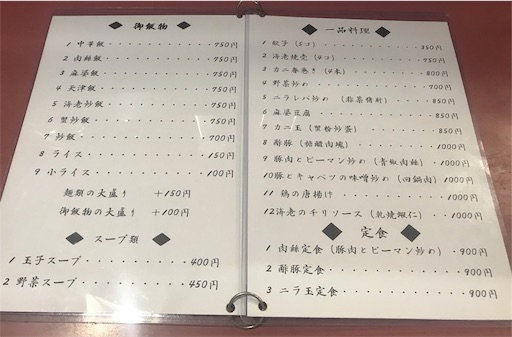 御飯物
1 中華飯 750円
2 肉絲飯 750円
3 麻婆飯 750円
4 天津飯 750円
5 海老炒飯 750円
6 蟹炒飯 750円
7 炒飯 700円
8 ライス 150円
9 小ライス 100円
麺類の大盛り +150円
御飯物の大盛り +100円
スープ類
1 玉子スープ 400円
2 野菜スープ 450円
一品料理
1 餃子(5コ) 350円
2 海老焼売(4コ) 750円
3 カニ春巻き(4本) 800円
4 野菜炒め 700円
5 ニラレバ炒め (韮菜猪肝) 850円
6 麻婆豆腐 850円
7 カニ玉(蟹粉炒蛋) 850円
8 酢豚(糖醋肉塊) 1000円
9 豚肉とピーマン炒め(青椒肉絲) 1000円
10豚とキャベツの味噌炒め(回鍋肉) 1000円
11 鶏の唐揚げ 1000円
12海老のチリソース(乾焼蝦仁) 1000円
定食
1 肉絲定食(豚肉とピーマン炒め) 900円
2 酢豚定食 900円
3 ニラ玉定食 900円